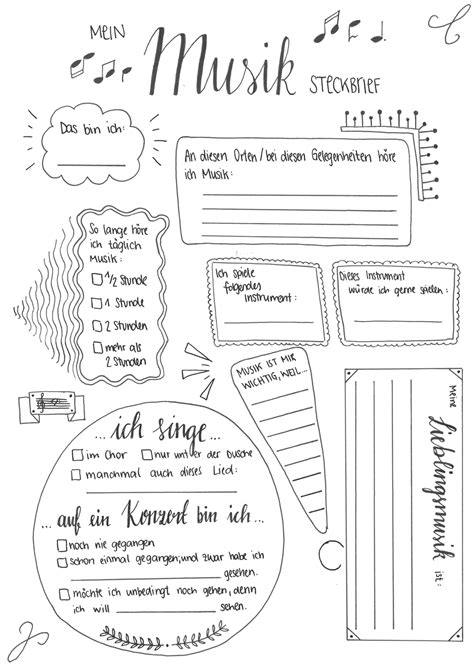 MEIN
Musik
STECKBRIEF
Das bin ich:
An diesen Orten/bei diesen Gelegenheiten höre
ich Musik:
So lange höre
ich täglich
Musik:
1/2 Stunde
1 Stunde
2 Stunden
mehr als
2 Stunden
Ich spiele
folgendes
Instrument:
Dieses Instrument
würde ich gerne spielen:
MUSIK IST MIR
WICHTIG, WEIL...
Meine
Lieblingsmusik
ist:
...ich singe...
im Chor
nur unter der Dusche
manchmal auch dieses Lied:
...auf ein Konzert bin ich...
noch nie gegangen
schon einmal gegangen, und zwar habe ich
gesehen.
möchte ich unbedingt noch gehen, denn
ich will
sehen.